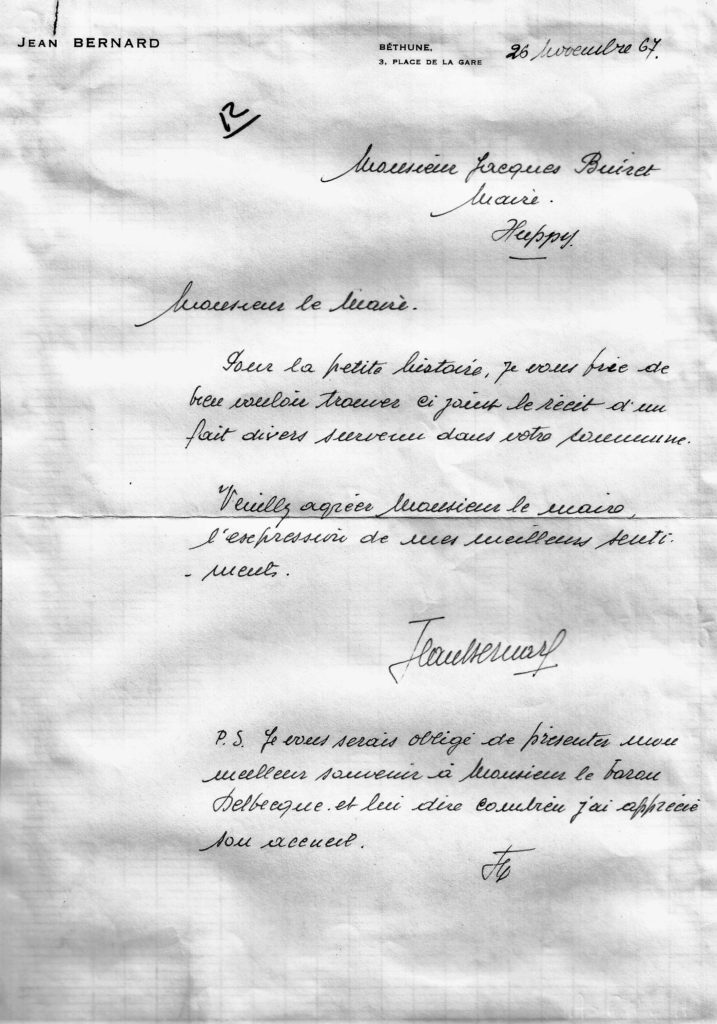 JEAN BERNARD
BÉTHUNE,
3, PLACE DE LA GARE
26 Novembre 67.
R
Monsieur Jacques Buiret
Maire.
Huppy.
Monsieur le Maire.
Pour la petite histoire, je vous prie de
bien vouloir trouver ci joint le récit d'un
fait divers survenu dans votre commune.
Veuillez agréer Monsieur le maire,
l'expression de mes meilleurs senti-
-ments.
JeanBernard
P.S. Je vous serais obligé de présenter mon
meilleur souvenir à Monsieur le baron
Delbecque et lui dire combien j'ai apprécié
son accueil.